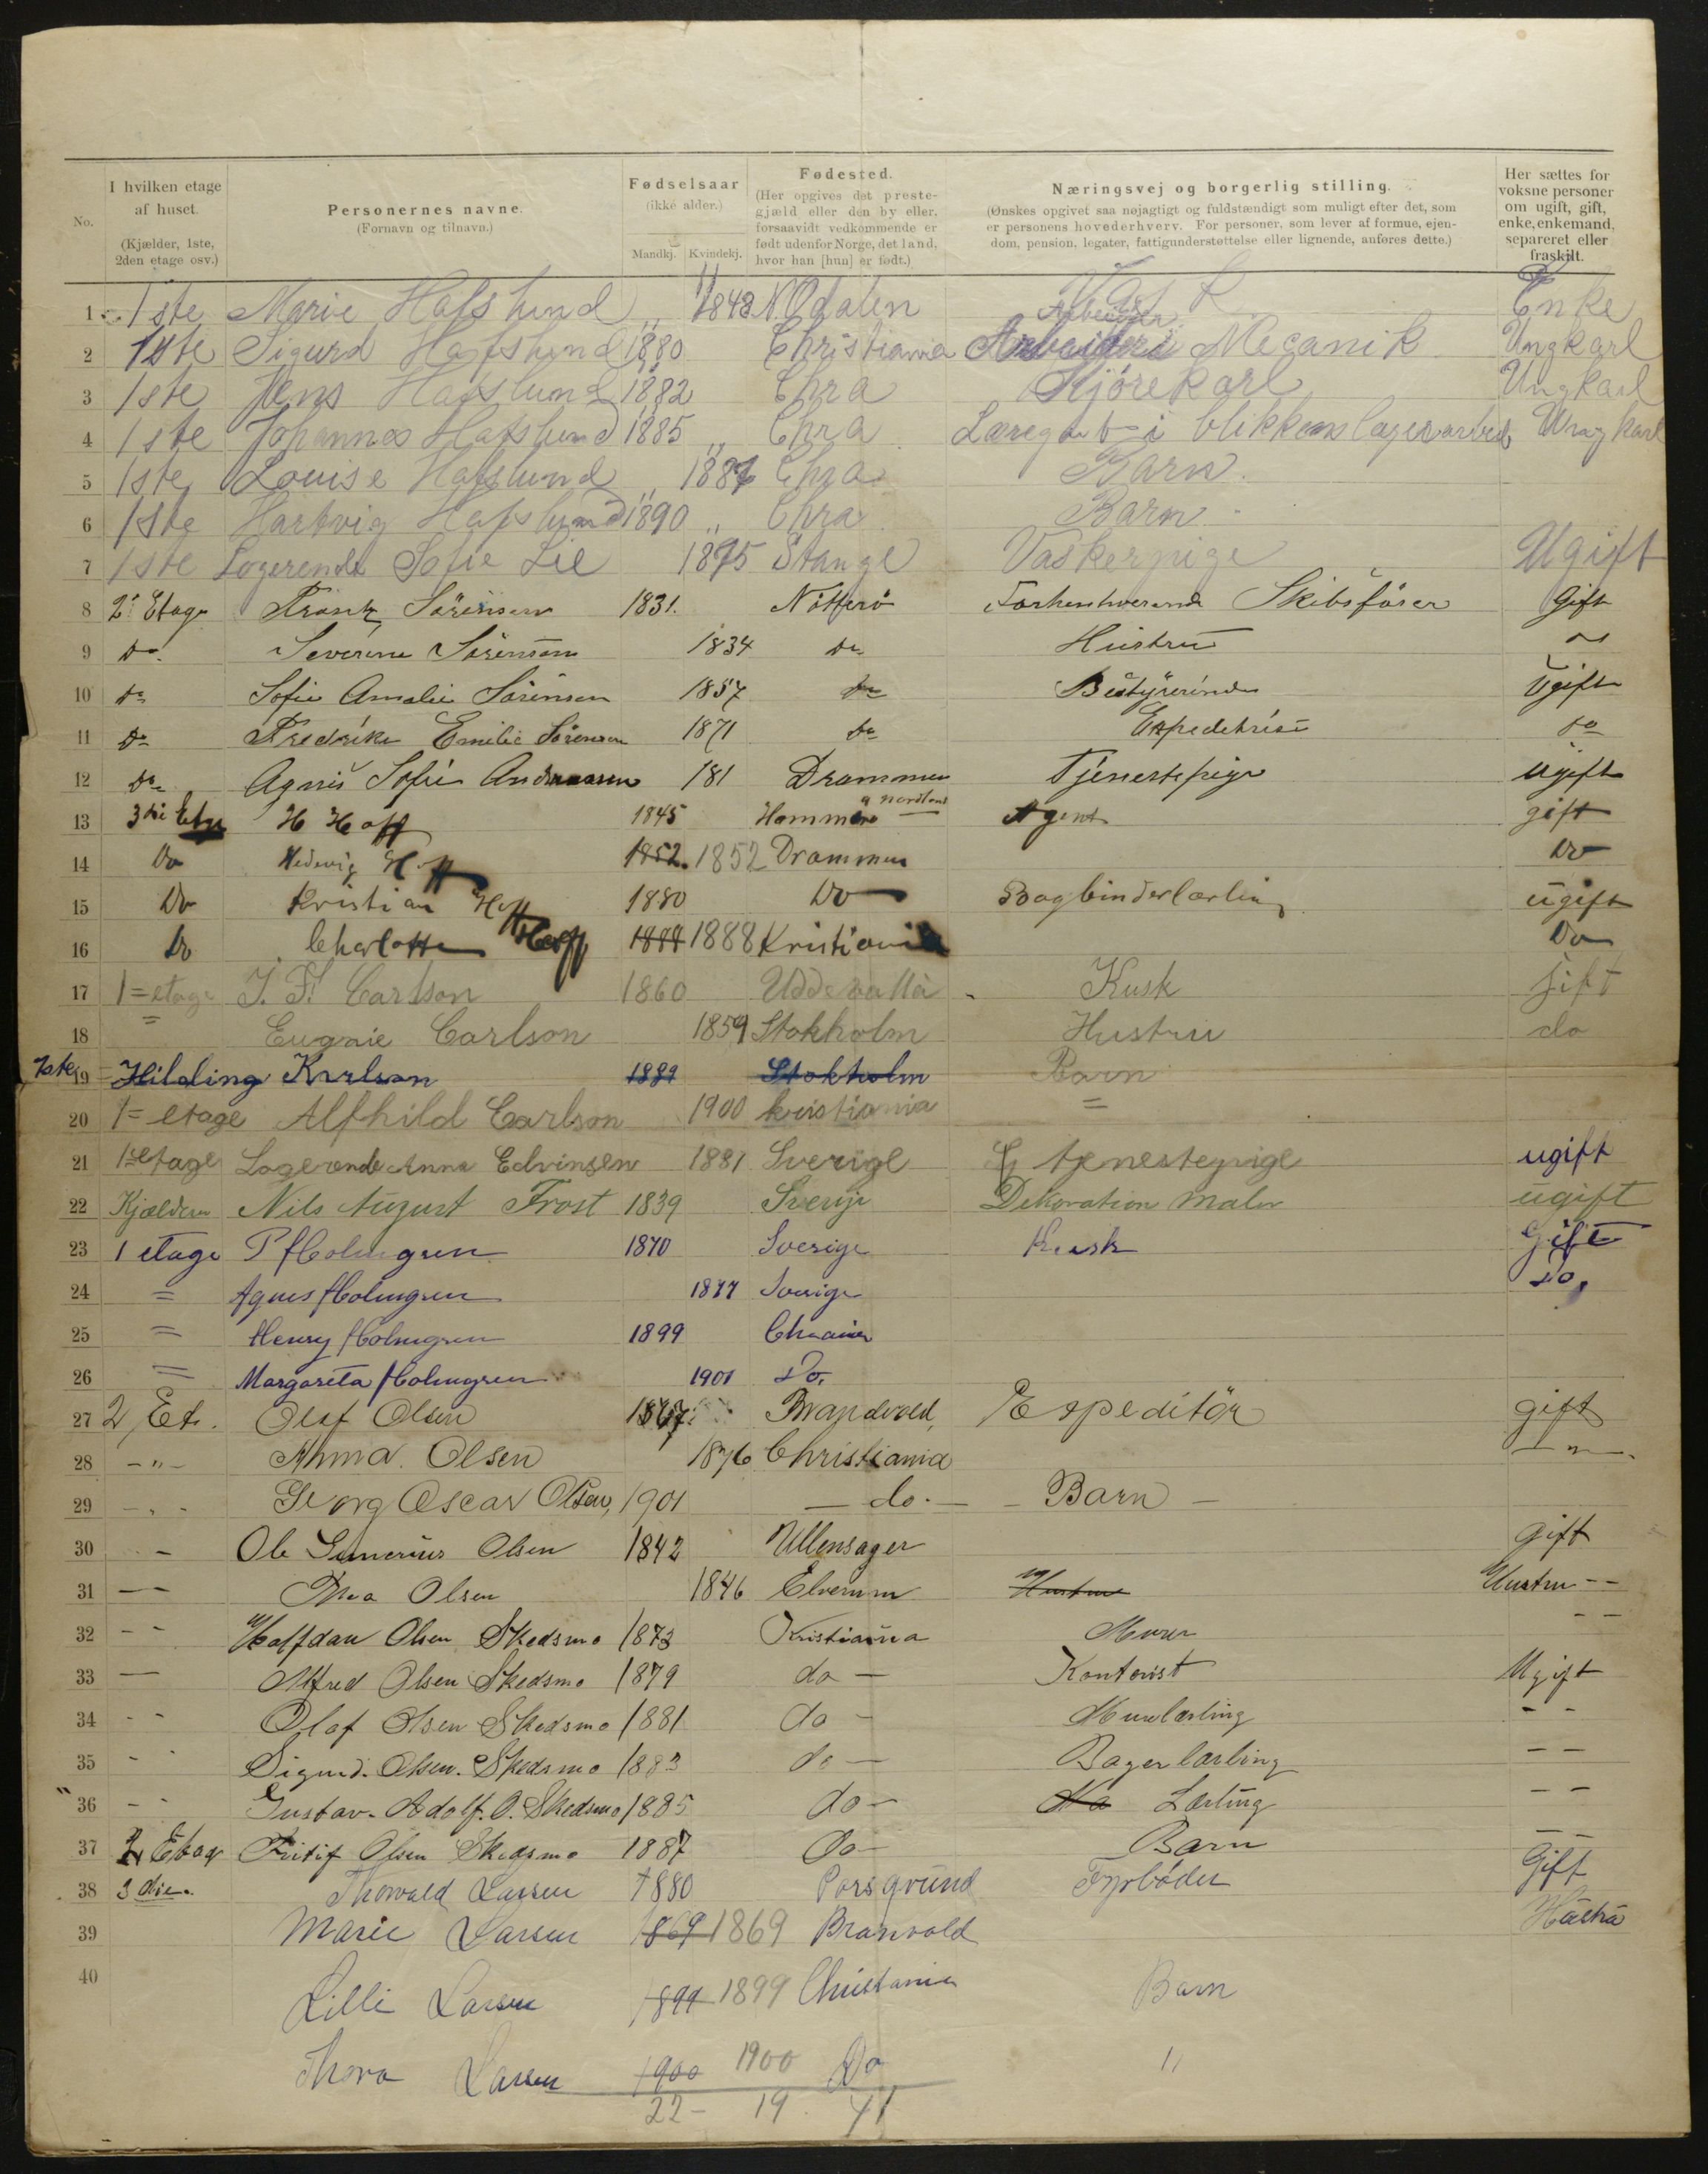 No.
I hvilken etage af huset. (Kjælder, 1ste, 2den etage osv.)
Personernes navne. (Fornavn og tilnavn.)
Fødselsaar (ikke alder.)
Mandkj. Kvindekj.
Fødested. (Her opgives det prestegjæld eller den by eller, forsaavidt vedkommende er født udenfor Norge, det land, hvor han [hun] er født.)
Næringsvej og borgerlig stilling. (Ønskes opgivet saa nøjagtigt og fuldstændigt som muligt efter det, som er personens hovederhverv. For personer, som lever af formue, ejendom, pension, legater, fattigunderstøttelse eller lignende, anføres dette.)
Her sættes for voksne personer om ugift, gift, enke, enkemand, separeret eller fraskilt.
1 1ste Marie Hafslund " 1848 N. Odalen Enke
2 1ste Sigurd Hafslund 1880 Christiania Arbeider i Mecanik Ungkarl
3 1ste Jens Hafslund 1882 Chra Kjörekarl Ungkarl
4 1ste Johannes Hafslund 1885 " Chra Læregut i blikkenslagerarbed Ungkarl
5 1ste Louise Hafslund " 1887 Chra Barn.
6 1ste Hartvig Hafslund 1890 " Chra Barn
7 1ste Logerende Sofie Lie 1875 Stange Vaskerpige Ugift
8 2. Etage Frantz Sörensen 1831. Nötterö Forhenhverende Skibsförer Gift
9 Do Severine Sörensen 1834 Do Hustru do
10 Do Sofie Amalie Sörensen 1857 Do Bestyrerinde Ugift
11 Do Fredrike Emilie Sörensen 1871 Do Expeditrise do
12 Do Agnes Sofie Andreassen 181 Drammen Tjenestepige ugift
13 3die Etge H Hoff 1845 Hammerø Nordland Agent gift
14 Do Hedevig Hoff 1852. 1852 Drammen Do
15 Do Kristian Hoff 1880 Do Bogbinderlærling ugift
16 Do Charlotte Hoff 1888 1888 Kristiania Do
17 1 = etage J. F. Carlson 1860 Uddevalla Kusk gift
18 = Eugnie Carlson 1859 Stokholm Hustru do
19 1ste Hilding Karlson 1889 Stokholm Barn
20 1 = etage Alfhild Carlson 1900 kristiania =
21 1 = etage Logerende Anna Edvinsen 1881 tjenestepige Sverige ugift
22 Kjælderen Nils August Frost 1839 Sverige Dekoration Maler ugift
23 1 etage P Holmgren 1870 Sverige Kusk Gift
24 = Agnes Holmgren 1877 Sverige Do,
25 = Henry Holmgren 1899 Chrania
26 = Margareta Holmgren 1901 Do.
27 2 Et. Olaf Olsen 1867. Brandvold, Expeditör gift
28 - " - Anna. Olsen 1876 Christiania - " -
29 - " - Georg Oscar Olsen, 1901 - do. - - Barn -
30 - Ole Olsen 1842 Ullensager gift
31 - - Thea Olsen 1846 Elverum Hustru Hustru - -
32 - - Halfdan Olsen Skedsmo 1873 Kristiania Murer - -
33 - Alfred Olsen Skedsmo 1879 do - Kontorist Ugift
34 - - Olaf Olsen Skedsmo 1881 do - Murelærling - -
35 - - Sigurd. Olsen. Skedsmo 1883 do - Bagerlærling - -
36 - - Gustav. Adolf. O. Skedsmo 1885 do - Lærling - -
37 2 Etag Fritjof Olsen Skedsmo 1887 do - Barn - -
38 3 die. Thorvald Larsen 1880 Porsgrund Fyrbøder Gift
39 Marie Larsen 1869 1869 Branvold Hustru
40 Lilli Larsen 1899 1899 Christiania Barn
Thora Larsen 1900 1900 Do "
22 - 19. 41